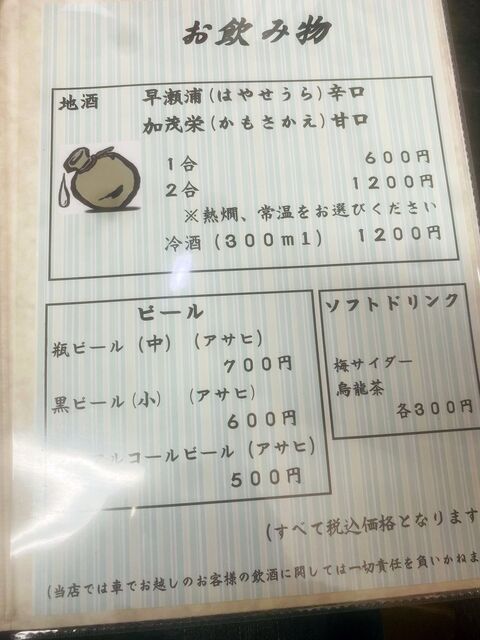 お飲み物
地酒　早瀬浦(はやせうら)辛口
加茂栄(かもさかえ)甘口
１合　６００円
２合　１２００円
※熱燗、常温をお選びください
冷酒（３００ml）　１２００円
ビール
瓶ビール（中）（アサヒ）
７００円
黒ビール(小)　（アサヒ）
６００円
ルコールビール（アサヒ）
５００円
ソフトドリンク
梅サイダー
烏龍茶
各３００円
(すべて税込価格となります
(当店では車でお越しのお客様の飲酒に関しては一切責任を負いかねま